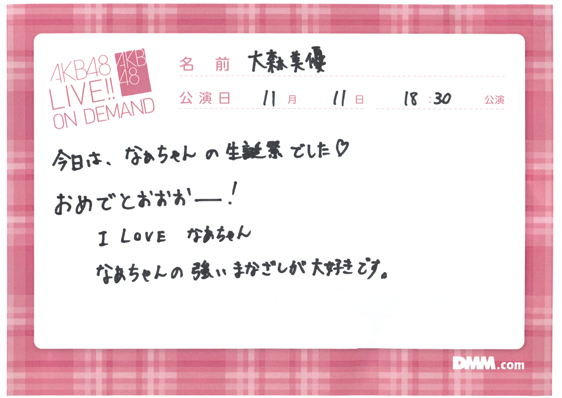 AKB48
LIVE!!
ON DEMAND
AKB
48
名 前 大森美優
公演日 11月 11日 18:30 公演
今日は、なぁちゃんの生誕祭でした♡
おめでとおおおー!
I LOVE なぁちゃん
なぁちゃんの強いまなざしが大好きです。
DMM.com